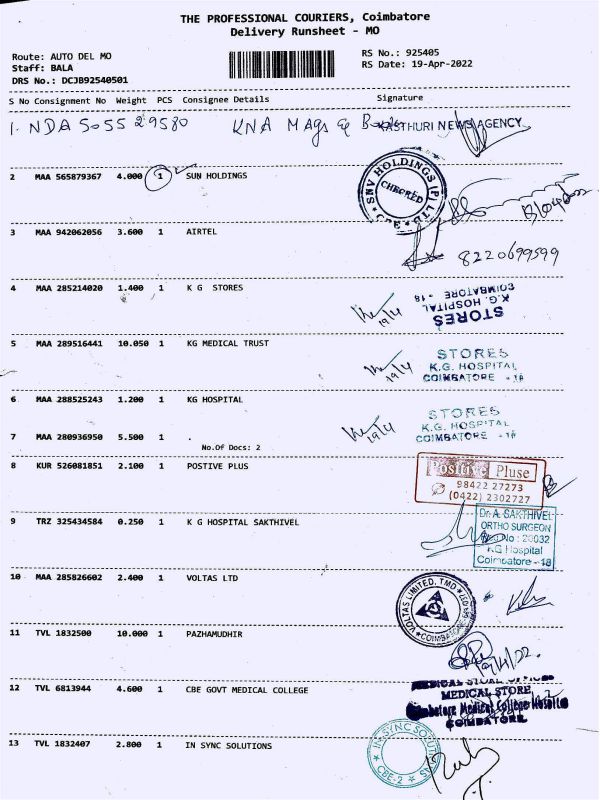 THE PROFESSIONAL COURIERS, Coimbatore
Delivery Runsheet - MO
Route: AUTO DEL MO
Staff: BALA
DRS No.: DCJB92540501
RS No.: 925405
RS Date: 19-Apr-2022
S No Consignment No Weight PCS Consignee Details Signature
1. NDA 5055 29580 KNA Mags & KASTHURI NEWS AGENCY
2 MAA 565879367 4.000 1 SUN HOLDINGS
SNV HOLDINGS (P) LTD
CHECKED
CBE
3 MAA 942062056 3.600 1 AIRTEL
8220699599
4 MAA 285214020 1.400 1 K G STORES
19/4
STORES
K.G. HOSPITAL
COIMBATORE - 18
5 MAA 289516441 10.050 1 KG MEDICAL TRUST
19/4
STORES
K.G. HOSPITAL
COIMBATORE - 18
6 MAA 288525243 1.200 1 KG HOSPITAL
19/4
STORES
K.G. HOSPITAL
COIMBATORE - 18
7 MAA 280936950 5.500 1 .
No.Of Docs: 2
8 KUR 526081851 2.100 1 POSTIVE PLUS
Positive Pluse
98422 27273
(0422) 2302727
9 TRZ 325434584 0.250 1 K G HOSPITAL SAKTHIVEL
Dr. A. SAKTHIVEL
ORTHO SURGEON
Reg No : 28032
KG Hospital
Coimbatore - 18
10 MAA 285826602 2.400 1 VOLTAS LTD
VOLTAS LIMITED, TMD
COIMBATORE
11 TVL 1832500 10.000 1 PAZHAMUDHIR
19/4/22.
12 TVL 6813944 4.600 1 CBE GOVT MEDICAL COLLEGE
MEDICAL STORE
Coimbatore Medical College Hospital
COIMBATORE
13 TVL 1832407 2.800 1 IN SYNC SOLUTIONS
IN SYNC SOLUTIONS
CBE-2